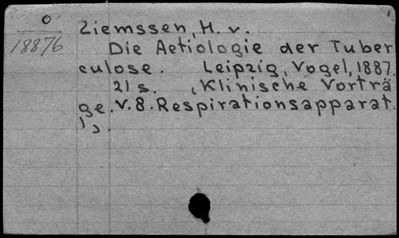 O
18876
Ziemssen, H. v.
Die Aetiologie der Tuber
culose. Leipzig, Vogel, 1887.
21 s. , Klinische Vorträ
ge. v. 8. Respirationsapparat.
1,